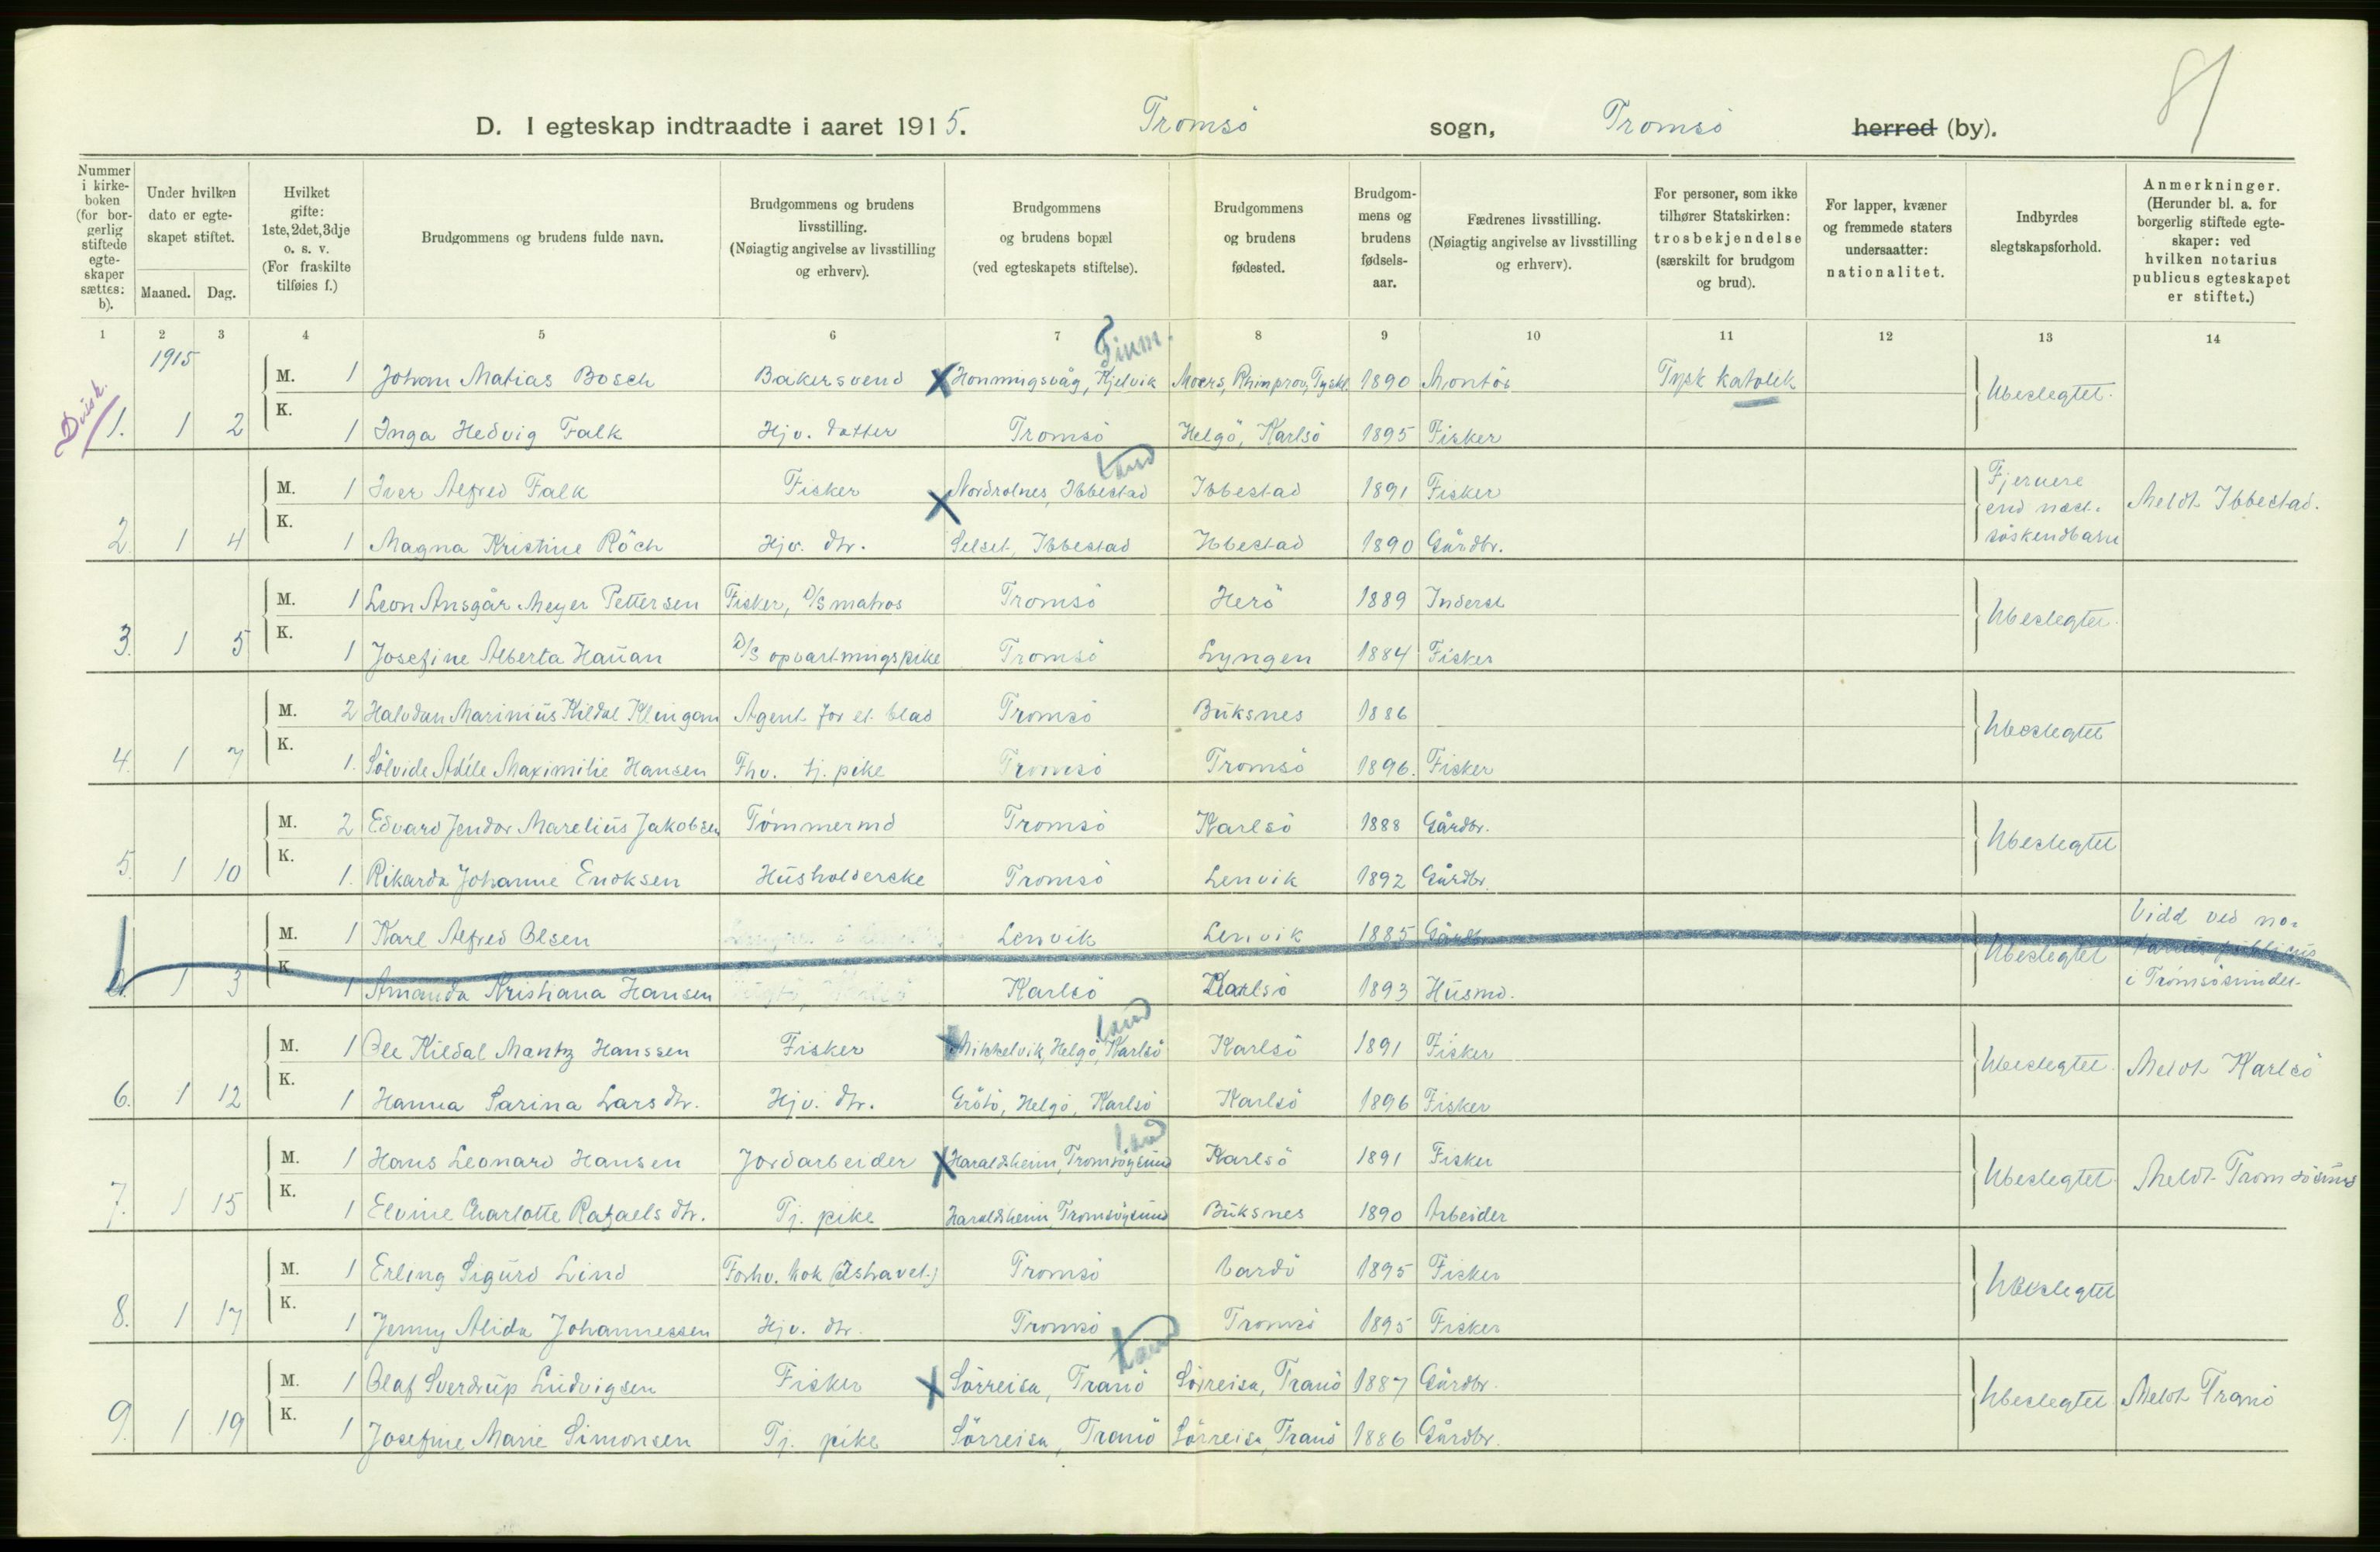 81
D. I egteskap indtraadte i aaret 1915. Tromsö sogn, Tromsö herred (by).
Nummer i kirke-boken (for bor-gerlig stiftede egte-skaper sættes: b).
Under hvilken dato er egte-skapet stiftet.
Maaned. Dag.
Hvilket gifte: 1ste, 2det, 3dje o. s. v. (For fraskilte tilføies f.)
Brudgommens og brudens fulde navn.
Brudgommens og brudens livsstilling. (Nøiagtig angivelse av livsstilling og erhverv).
Brudgommens og brudens bopæl (ved egteskapets stiftelse).
Brudgommens og brudens fødested.
Brudgom-mens og brudens fødsels-aar.
Fædrenes livsstilling. (Nøiagtig angivelse av livsstilling og erhverv).
For personer, som ikke tilhører Statskirken: trosbekjendelse (særskilt for brudgom og brud).
For lapper, kvæner og fremmede staters undersaatter: nationalitet.
Indbyrdes slegtskapsforhold.
Anmerkninger. (Herunder bl. a. for borgerlig stiftede egte-skaper: ved hvilken notarius publicus egteskapet er stiftet.)
1 2 3 4 5 6 7 8 9 10 11 12 13 14
1915
Finm.
M. 1 Johan Matias Bosch Bakersvend X Honningsvåg, Kjelvik Moers, Rhinprov, Tyskl. 1890 Montör Tysk katolik Ubeslegtet.
1. 1 2 K. 1 Inga Hedvig Falk Hjv. datter Tromsö Helgö, Karlsö 1895 Fisker
Land
M. 1 Iver Alfred Falk Fisker X Nordrolnes, Ibbestad Ibbestad 1891 Fisker Fjernere end næst. söskendbarn Meldt Ibbestad.
2. 1 4 K. 1 Magna Kristine Röch Hjv. dtr. Selset, Ibbestad Ibbestad 1890 Gårdbr.
M. 1 Leon Ansgår Meyer Pettersen Fisker, D/S matros Tromsö Herö 1889 Inderst Ubeslegtet.
3. 1 5 K. 1 Josefine Alberta Hauan D/S opvartningspike Tromsö Lyngen 1884 Fisker
M. 2 Halvdan Marinius Kildal Klingan Agent for et blad Tromsö Buksnes 1886 Ubeslegtet
4. 1 7 K. 1. Sölvide Adéle Maximilie Hansen Fhv. tj. pike Tromsö Tromsö 1896. Fisker
M. 2 Edvard Jendor Marelius Jakobsen Tömmermd Tromsö Karlsö 1888 Gårdbr. Ubeslegtet
5. 1 10 K. 1. Rikarda Johanne Enoksen Husholderske Tromsö Lenvik 1892 Gårdbr.
M. 1 Karl Alfred Olsen Lenvik Lenvik 1885 Gårdbr. Ubeslegtet Vidd ved no-tarius publicus i Tromsösundet.
1 3 K. 1 Amanda Kristiana Hansen Karlsö Karlsö 1893 Husmd.
Land
M. 1 Ole Kildal Mantz Hanssen Fisker Mikkelvik, Helgö, Karlsö Karlsö 1891 Fisker Ubeslegtet. Meldt Karlsö
6. 1 12 K. 1 Hanna Sarina Larsdtr. Hjv. dtr. Grötö, Helgö, Karlsö Karlsö 1896 Fisker
Land
M. 1 Hans Leonard Hansen Jordarbeider X Haraldsheim, Tromsöysund Karlsö 1891 Fisker Ubeslegtet. Meldt Tromsösund
7. 1 15 K. 1 Elvine Charlotte Rafaelsdtr. Tj. pike Haraldsheim, Tromsöysund Buksnes 1890 Arbeider
M. 1 Erling Sigurd Lind Forhv. kok (Ishavet.) Tromsö Vardö 1895 Fisker Ubeslegtet
8. 1 17 K. 1 Jenny Alida Johannessen Hjv. dtr. Tromsö Tromsö 1895 Fisker
Land
M. 1 Olaf Sverdrup Ludvigsen Fisker X Sörreisa, Tranö Sörreisa, Tranö 1887 Gårdbr. Ubeslegtet. Meldt Tranö
9. 1 19 K. 1 Josefine Marie Simonsen Tj. pike Sörreisa, Tranö Sörreisa, Tranö 1886 Gårdbr.